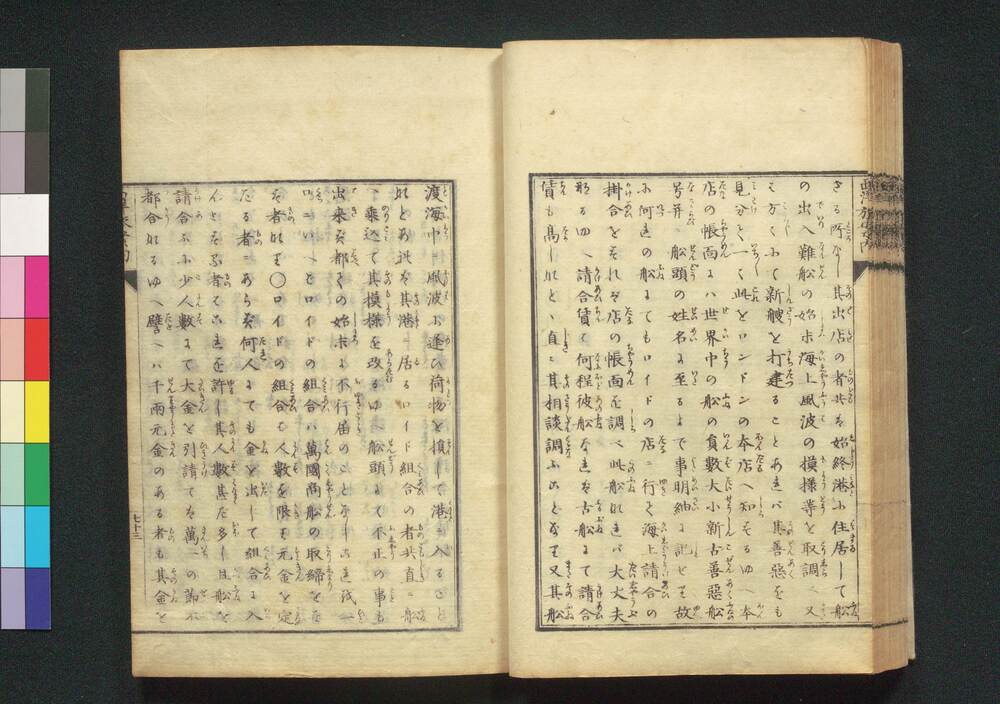 さる所なし其出店の者共を始終港に住居して船
の出入難船の始末海上風波の模様等を取調へ又
こ方〱にて新艘を打建ることあれバ其善惡をも
見分〱て一〻此をロンドンの本店へ知せるゆへ本
店の帳面にハ世界中の船の員數大小新古善惡船
号并に船頭の姓名に至るまで事明細に記せり故
に何連の船にてもロイドの店に行き海上請合の
掛合をすれバ店の帳面を調へ此船なれバ大丈夫
形るゆへ請合賃も何程彼船なれバ古船にて請合
賃も高しなとゝ直に其相談調ふことなり又其船
渡海中風波に逢ひ荷物を損して港に入ること
などあれバ其港に居るロイド組合の者共直に船
に乗込て其模様を改るゆへ船頭にて不正の事も
出来ず都ての始末に不行届のことなし
ロイドの組合ハ萬國商船の取締を
する者なれども〇ロイドの組合も人数を限り元金を定
たる者にあらず何人にても金を出して組合に入
んとする者にハこれを許し其人數甚だ多し且船を
請合ふに少人數にて大金を引請てハ萬一の節不
都合なるゆへ譬ヘハ千兩元金のある者も其金を
七十三